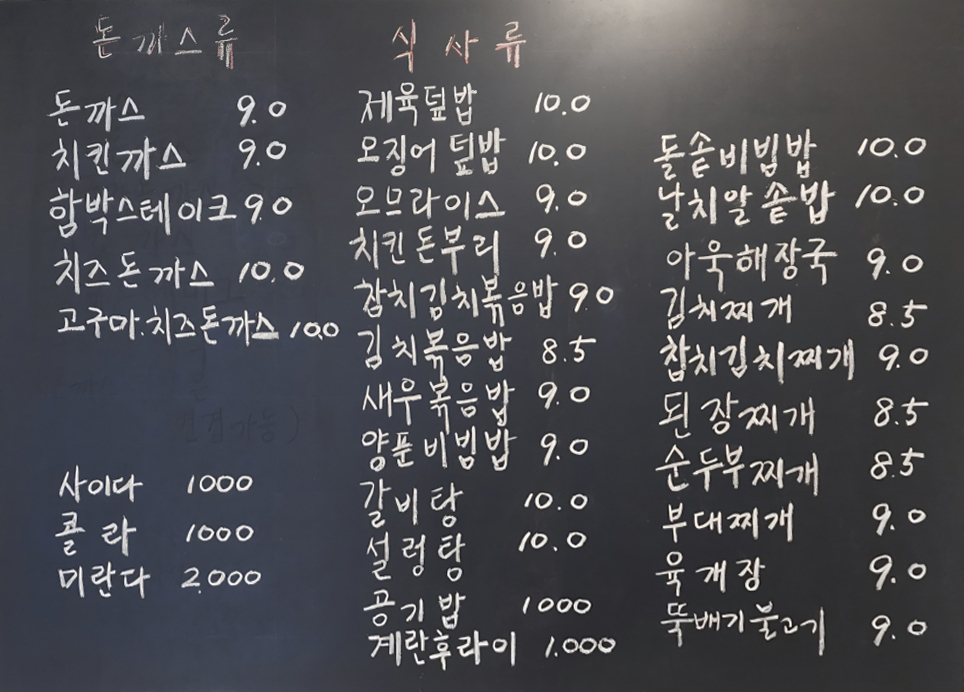 돈까스류
돈까스 9.0
치킨까스 9.0
함박스테이크 9.0
치즈돈까스 10.0
고구마.치즈돈까스 10.0
사이다 1000
콜라 1000
미란다 2.000
식사류
제육덮밥 10.0
오징어덮밥 10.0
오므라이스 9.0
치킨돈부리 9.0
참치김치볶음밥 9.0
김치볶음밥 8.5
새우볶음밥 9.0
양푼비빔밥 9.0
갈비탕 10.0
설렁탕 10.0
공기밥 1000
계란후라이 1.000
돌솥비빔밥 10.0
날치알솥밥 10.0
아욱해장국 9.0
김치찌개 8.5
참치김치찌개 9.0
된장찌개 8.5
순두부찌개 8.5
부대찌개 9.0
육개장 9.0
뚝배기불고기 9.0